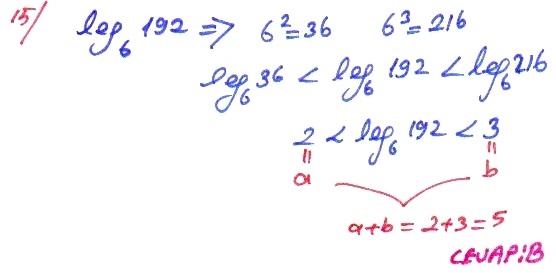 15/ log₆ 192 ⇒ 6² = 36 6³ = 216
log₆ 36 < log₆ 192 < log₆ 216
2 < log₆ 192 < 3
= =
a b
a+b = 2+3 = 5
CEVAP: B